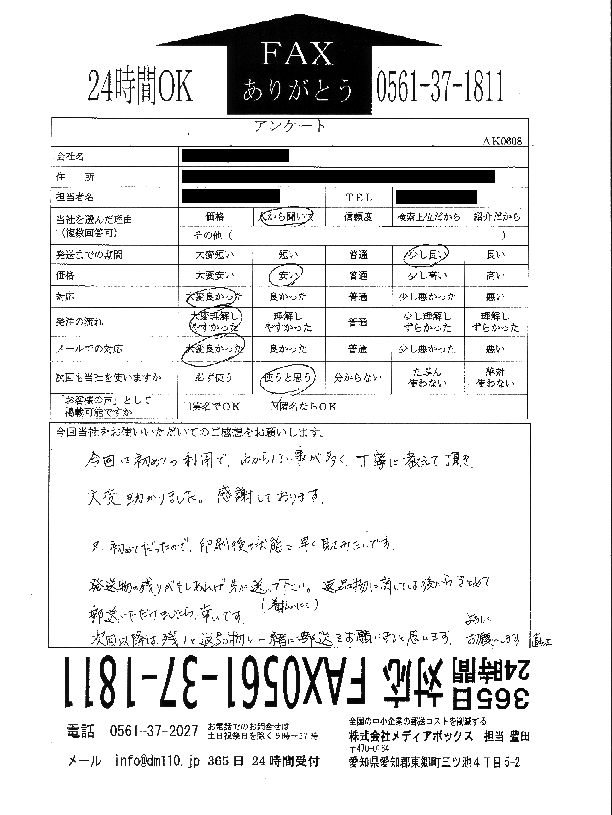 FAX
ありがとう
24時間OK
0561-37-1811
アンケート
AK0608
会社名
住 所
担当者名 TEL
当社を選んだ理由 価格 人から聞いて 信頼度 検索上位だから 紹介だから
(複数回答可) その他( )
発送までの期間 大変短い 短い 普通 少し長い 長い
価格 大変安い 安い 普通 少し高い 高い
対応 大変良かった 良かった 普通 少し悪かった 悪い
発注の流れ 大変理解しやすかった 理解しやすかった 普通 少し理解しずらかった 理解しずらかった
メールでの対応 大変良かった 良かった 普通 少し悪かった 悪い
次回も当社を使いますか 必ず使う 使うと思う 分からない たぶん使わない 絶対使わない
「お客様の声」として
掲載可能ですか 実名でOK 匿名ならOK
今回当社をお使いいただいてのご感想をお願いします。
今回は初めての利用で、わからない事が多く、丁寧に教えて頂き
大変助かりました。感謝しております。
初めてだったので、印刷後の状態を早く見てみたいです。
発送物の残りがもしあれば 下さい。返品物に関しては後からまとめて
郵送いただけましたら幸いです。
(着払いにて)
次回以降は残りと返品物を一緒に郵送をお願いすると思います。
よろしく
お願いします
365日
24時間
対応 FAX0561-37-1811
電話 0561-37-2027 お電話でのお問合せは
土日祝祭日を除く9時~17時
メール info@dm110.jp 365日 24時間受付
全国の中小企業の郵送コストを削減する
株式会社メディアボックス 担当 豊田
〒470-0164
愛知県愛知郡東郷町三ツ池4丁目5-2